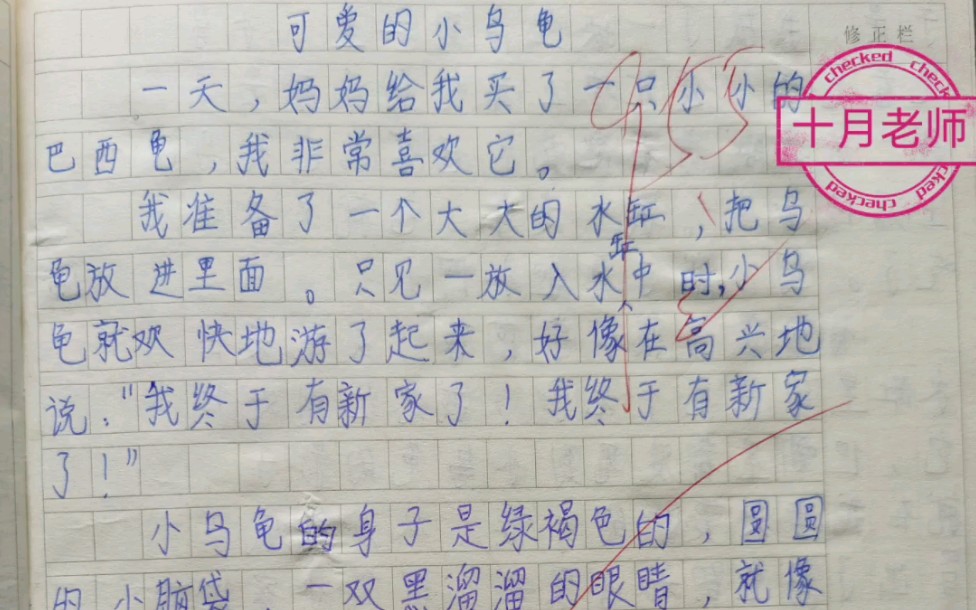 可爱的小乌龟
修正栏
一天，妈妈给我买了一只小小的
巴西龟，我非常喜欢它。
我准备了一个大大的水缸，把乌
龟放进里面。只见一放入水缸中时，小乌
龟就欢快地游了起来，好像在高兴地
说：“我终于有新家了！我终于有新家
了！”
小乌龟的身子是绿褐色的，圆圆
的小脑袋，一双黑溜溜的眼睛，就像
95
checked checked
十月老师
checked checked